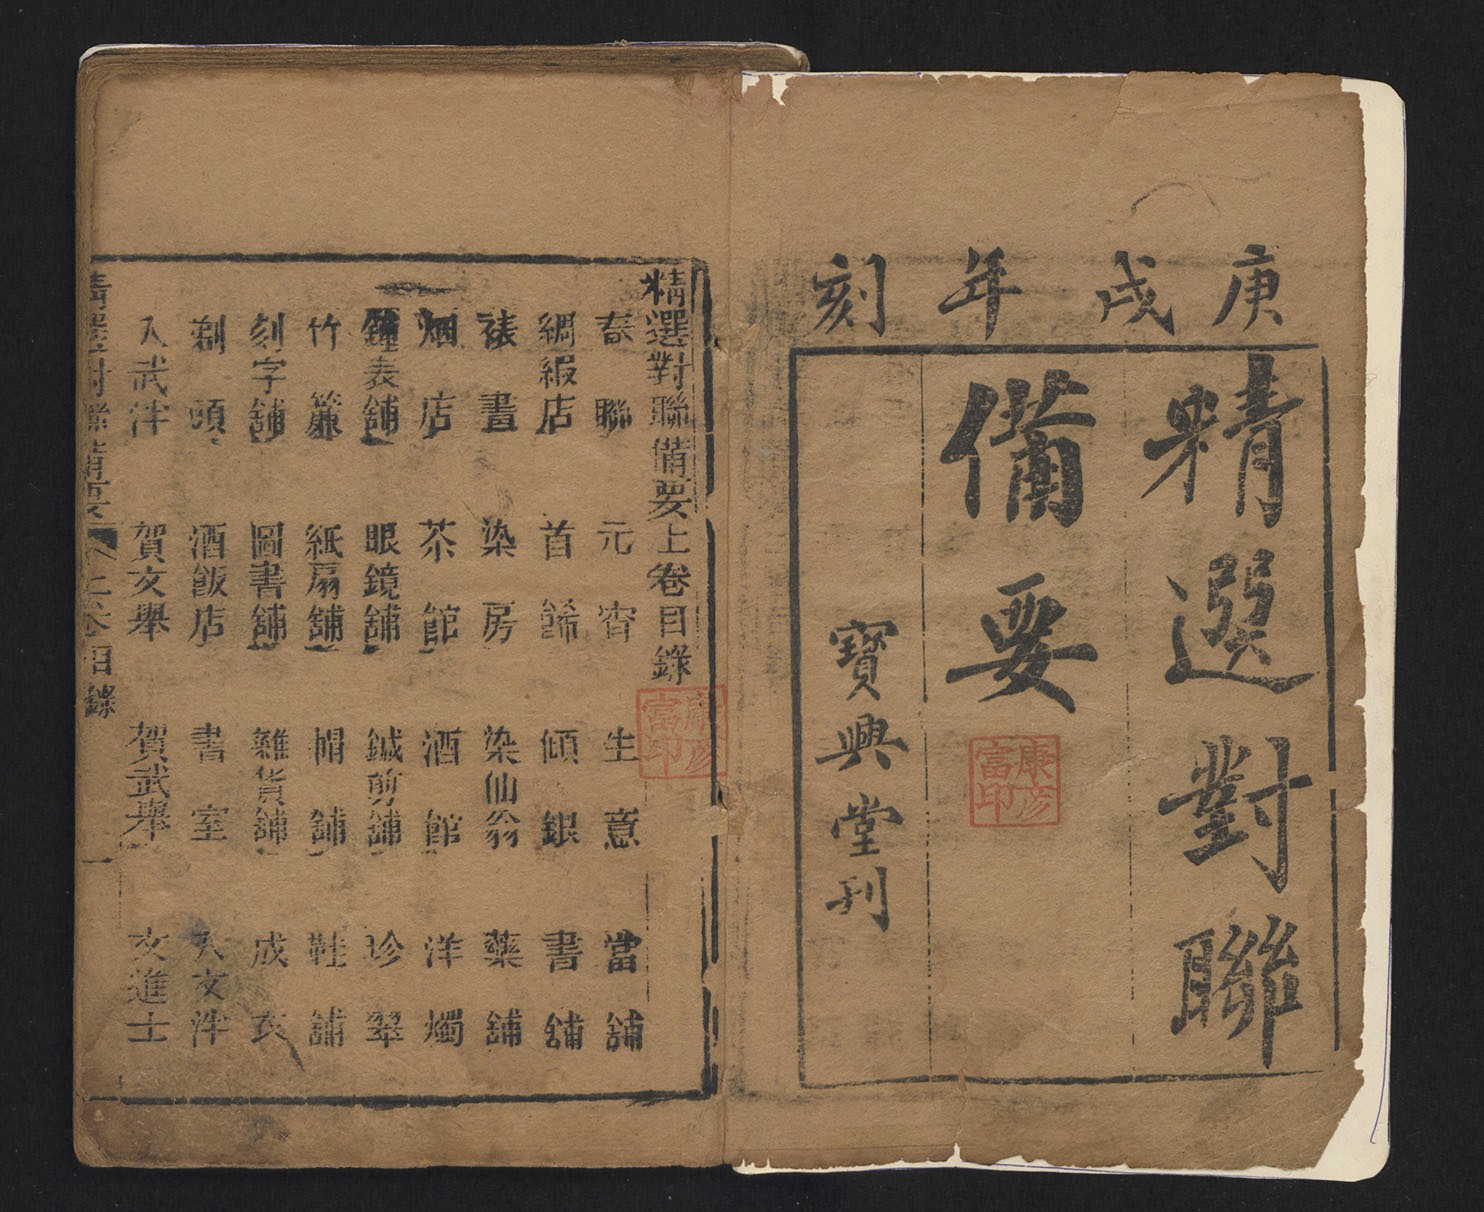 庚戌年刻
精選對聯
備要
寶興堂刊
康彦
富印
精選對聯備要上卷目錄
春聯 元宵 生意 當舖
綢緞店 首餙 傾銀 書舖
裱畫 染房 染仙翁 藥舖
烟店 茶館 酒館 洋燭
鐘表舖 眼鏡舖 鍼剪舖 珍翠
竹簾 紙扇舖 帽舖 鞋舖
刻字舖 圖書舖 雜貨舖 成衣
剃頭 酒飯店 書室 入文泮
入武泮 賀文舉 賀武舉 文進士
精選對聯備要 上卷目錄 一
康彦
富印